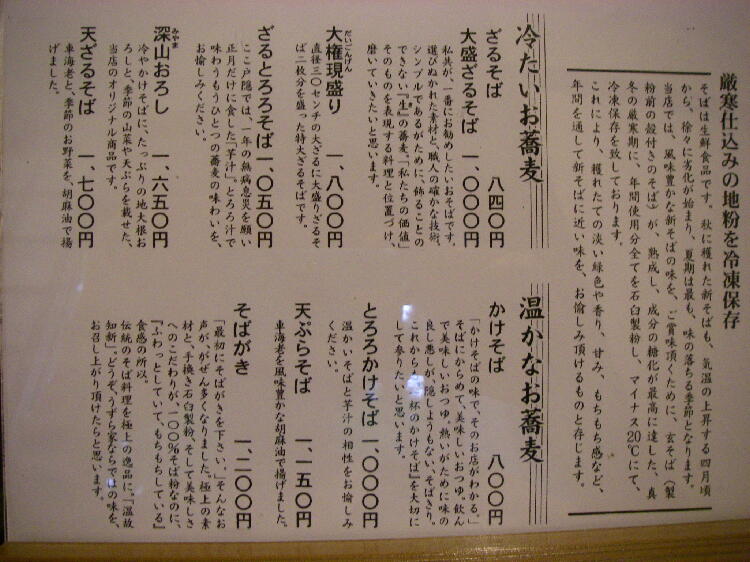 厳寒仕込みの地粉を冷凍保存
そばは生鮮食品です。秋に穫れた新そばも、気温の上昇する四月頃
から、徐々に劣化が始まり、夏期は最も、味の落ちる季節となります。
当店では、風味豊かな新そばの味を、ご賞味頂くために、玄そば（製
粉前の殻付きのそば）が、熟成し、成分の糖化が最高に達した、真
冬の厳寒期に、年間使用分全てを石臼製粉し、マイナス20℃にて、
冷凍保存を致しております。
これにより、穫れたての淡い緑色や香り、甘み、もちもち感など、
年間を通して新そばに近い味を、お愉しみ頂けるものと存じます。
冷たいお蕎麦
ざるそば 八四〇円
大盛ざるそば 一、〇〇〇円
私共が、一番にお勧めしたいおそばです。
選びぬかれた素材と、職人の確かな技術。
シンプルであるがために、飾ることの
できない『生』の蕎麦を「私たちの価値」
そのものを表現する料理と位置づけ、
磨いていきたいと思います。
大権現盛り 一、八〇〇円
だいごんげん
直径三〇センチの大ざるに大盛りざるそ
ば二枚分を盛った特大ざるそばです。
ざるとろろそば 一、〇五〇円
ここ戸隠では、一年の無病息災を願い
正月だけに食した「芋汁」。とろろ汁で
味わうもうひとつの蕎麦の味わいを、
お愉しみください。
深山おろし 一、六五〇円
みやま
冷やかけそばに、たっぷりの地大根お
ろしと、季節の山菜や天ぷらを載せた、
当店のオリジナル商品です。
天ざるそば 一、七〇〇円
車海老と、季節のお野菜を、胡麻油で揚
げました。
温かなお蕎麦
かけそば 八〇〇円
「かけそばの味で、そのお店がわかる。」
そばにからめて、美味しいおつゆ。飲ん
で美味しいおつゆ。熱いがために味の
良し悪しが、隠しようもない、そばぎり。
これからも『一杯のかけそば』を大切に
して参りたいと思います。
とろろかけそば 一、〇〇〇円
温かいそばと芋汁の相性をお愉しみ
ください。
天ぷらそば 一、一五〇円
車海老を風味豊かな胡麻油で揚げました。
そばがき 一、二〇〇円
「最初にそばがきを下さい。」そんなお
声が、がぜん多くなりました。極上の素
材と、手挽き石臼製粉、そして美味しさ
へのこだわりが、一〇〇％そば粉なのに、
『ふわっとしていて、もちもちしている』
食感の所以。
伝統のそば料理を極上の逸品に。「温故
知新」。どうぞ、うずら家ならではの味を、
お召し上がり頂けたらと思います。